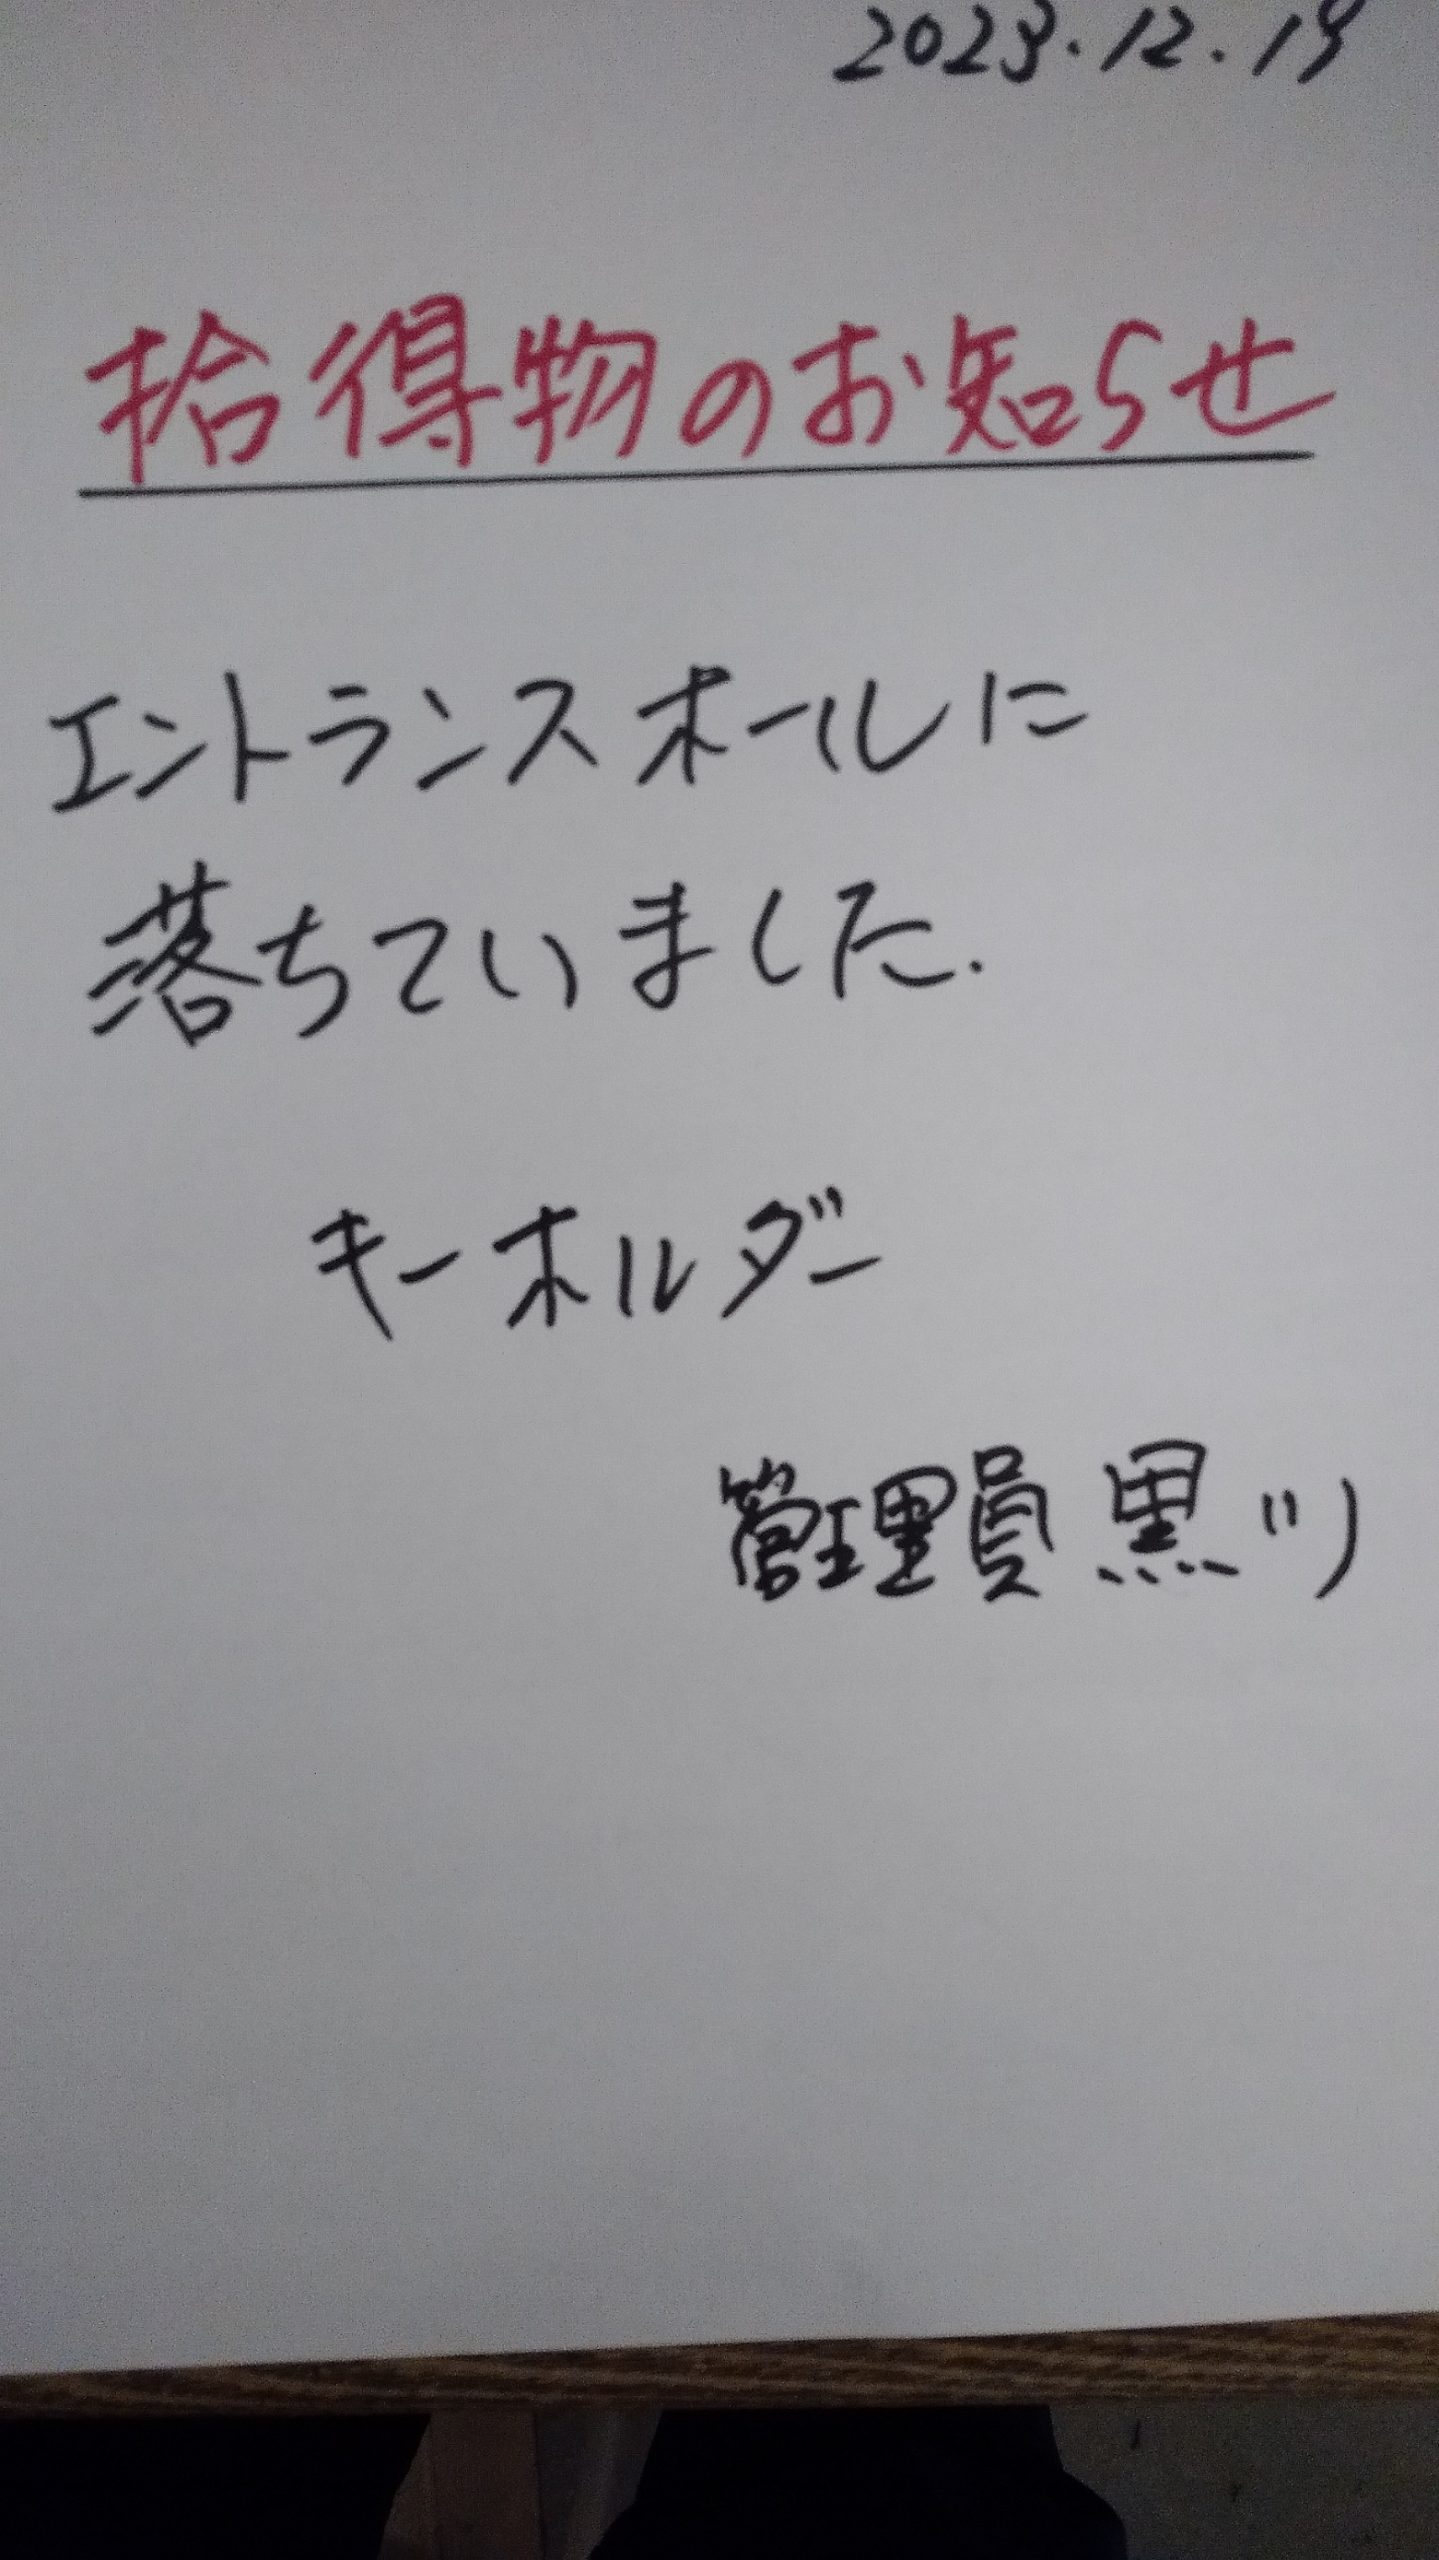 2023.12.19
拾得物のお知らせ
エントランスホールに
落ちていました.
キーホルダー
管理員 黒川